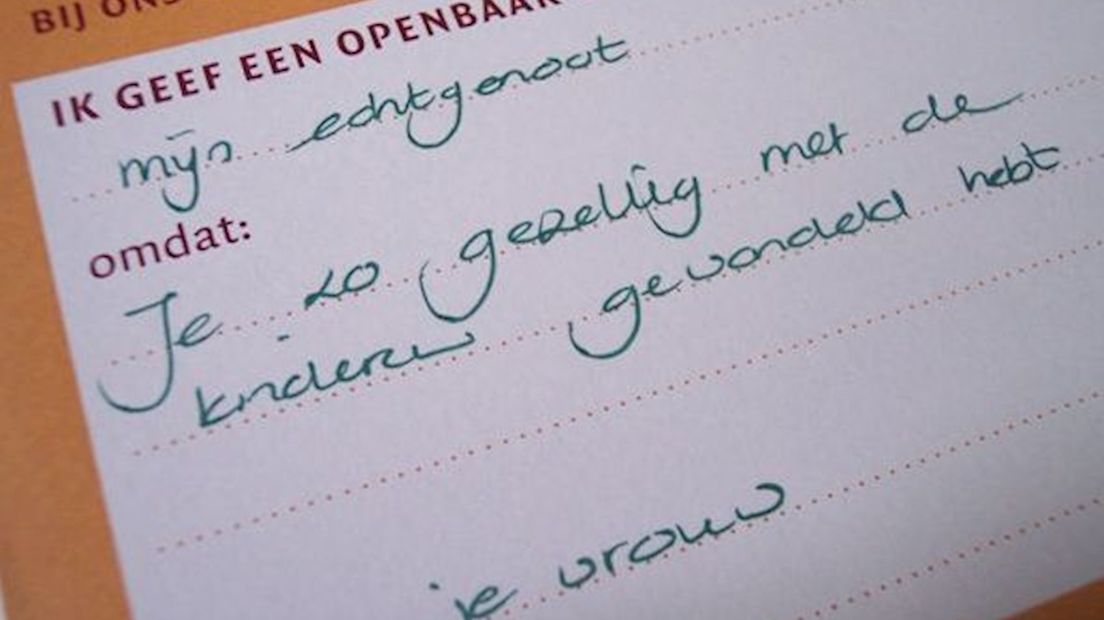 BIJ ONS
IK GEEF EEN OPENBAAR
mijn echtgenoot
omdat:
Je zo gezellig met de
kinderen gewandeld hebt
je vrouw